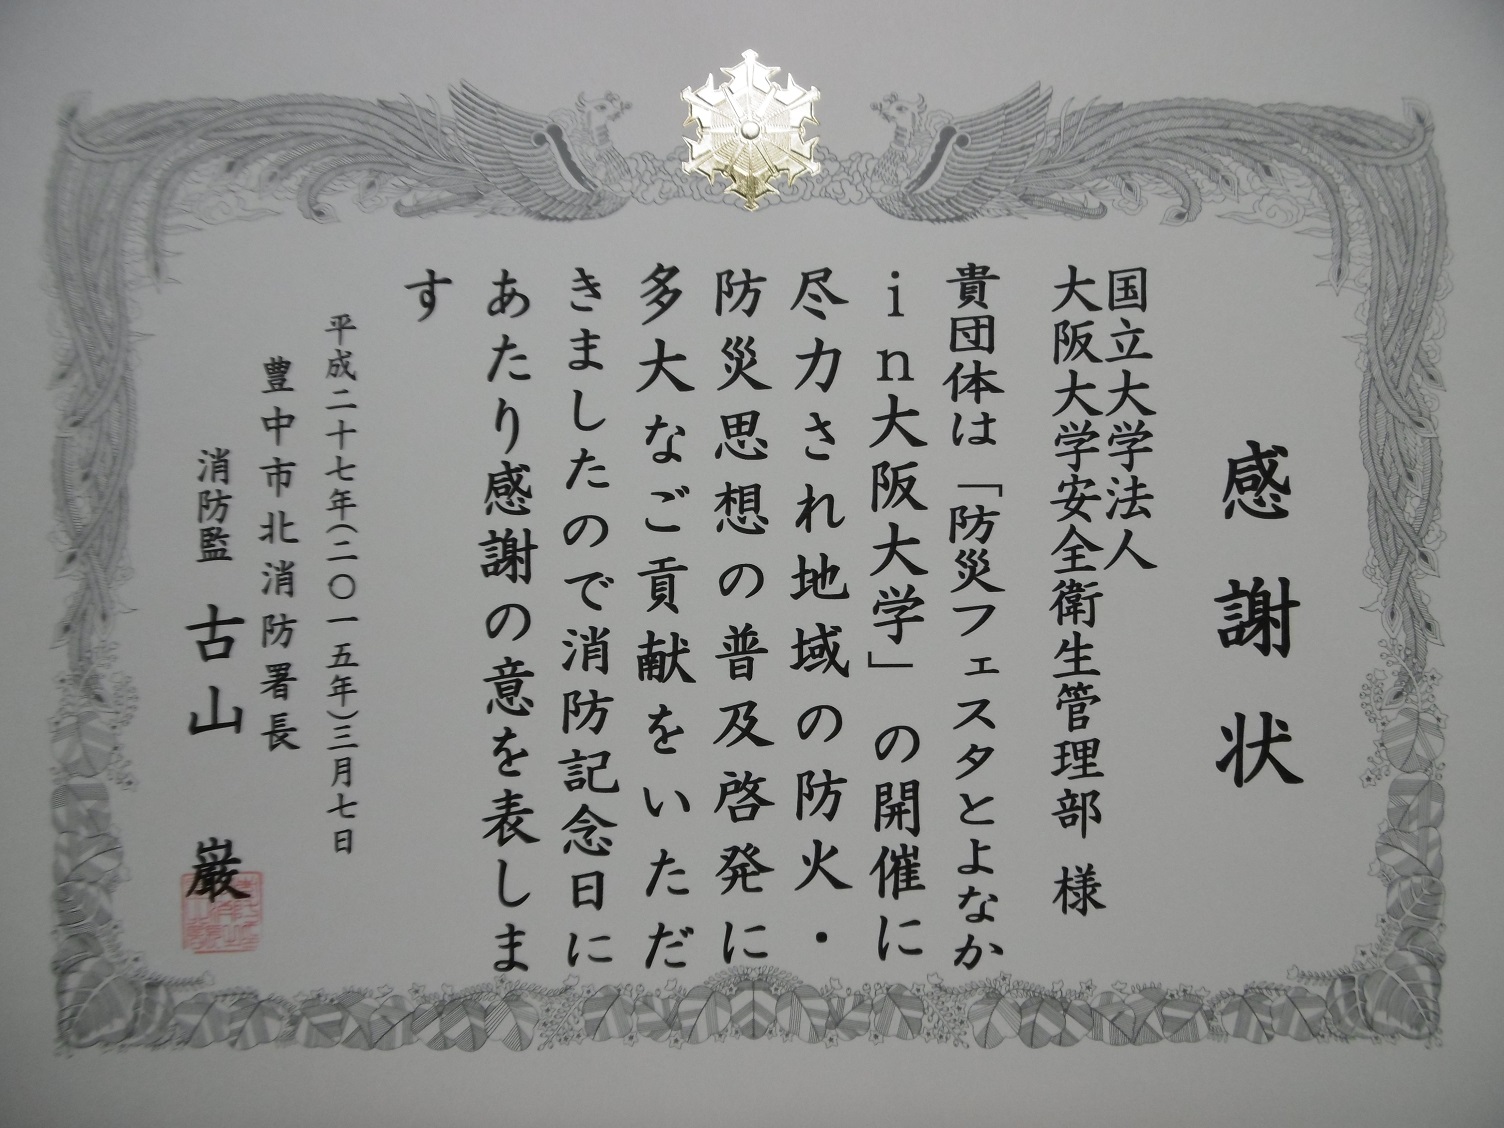 感謝状
国立大学法人
大阪大学安全衛生管理部 様
貴団体は「防災フェスタとよなか
in大阪大学」の開催に
尽力され地域の防火・
防災思想の普及啓発に
多大なご貢献をいただ
きましたので消防記念日に
あたり感謝の意を表しま
す
平成二十七年(二〇一五年)三月七日
豊中市北消防署長
消防監 古山 巌